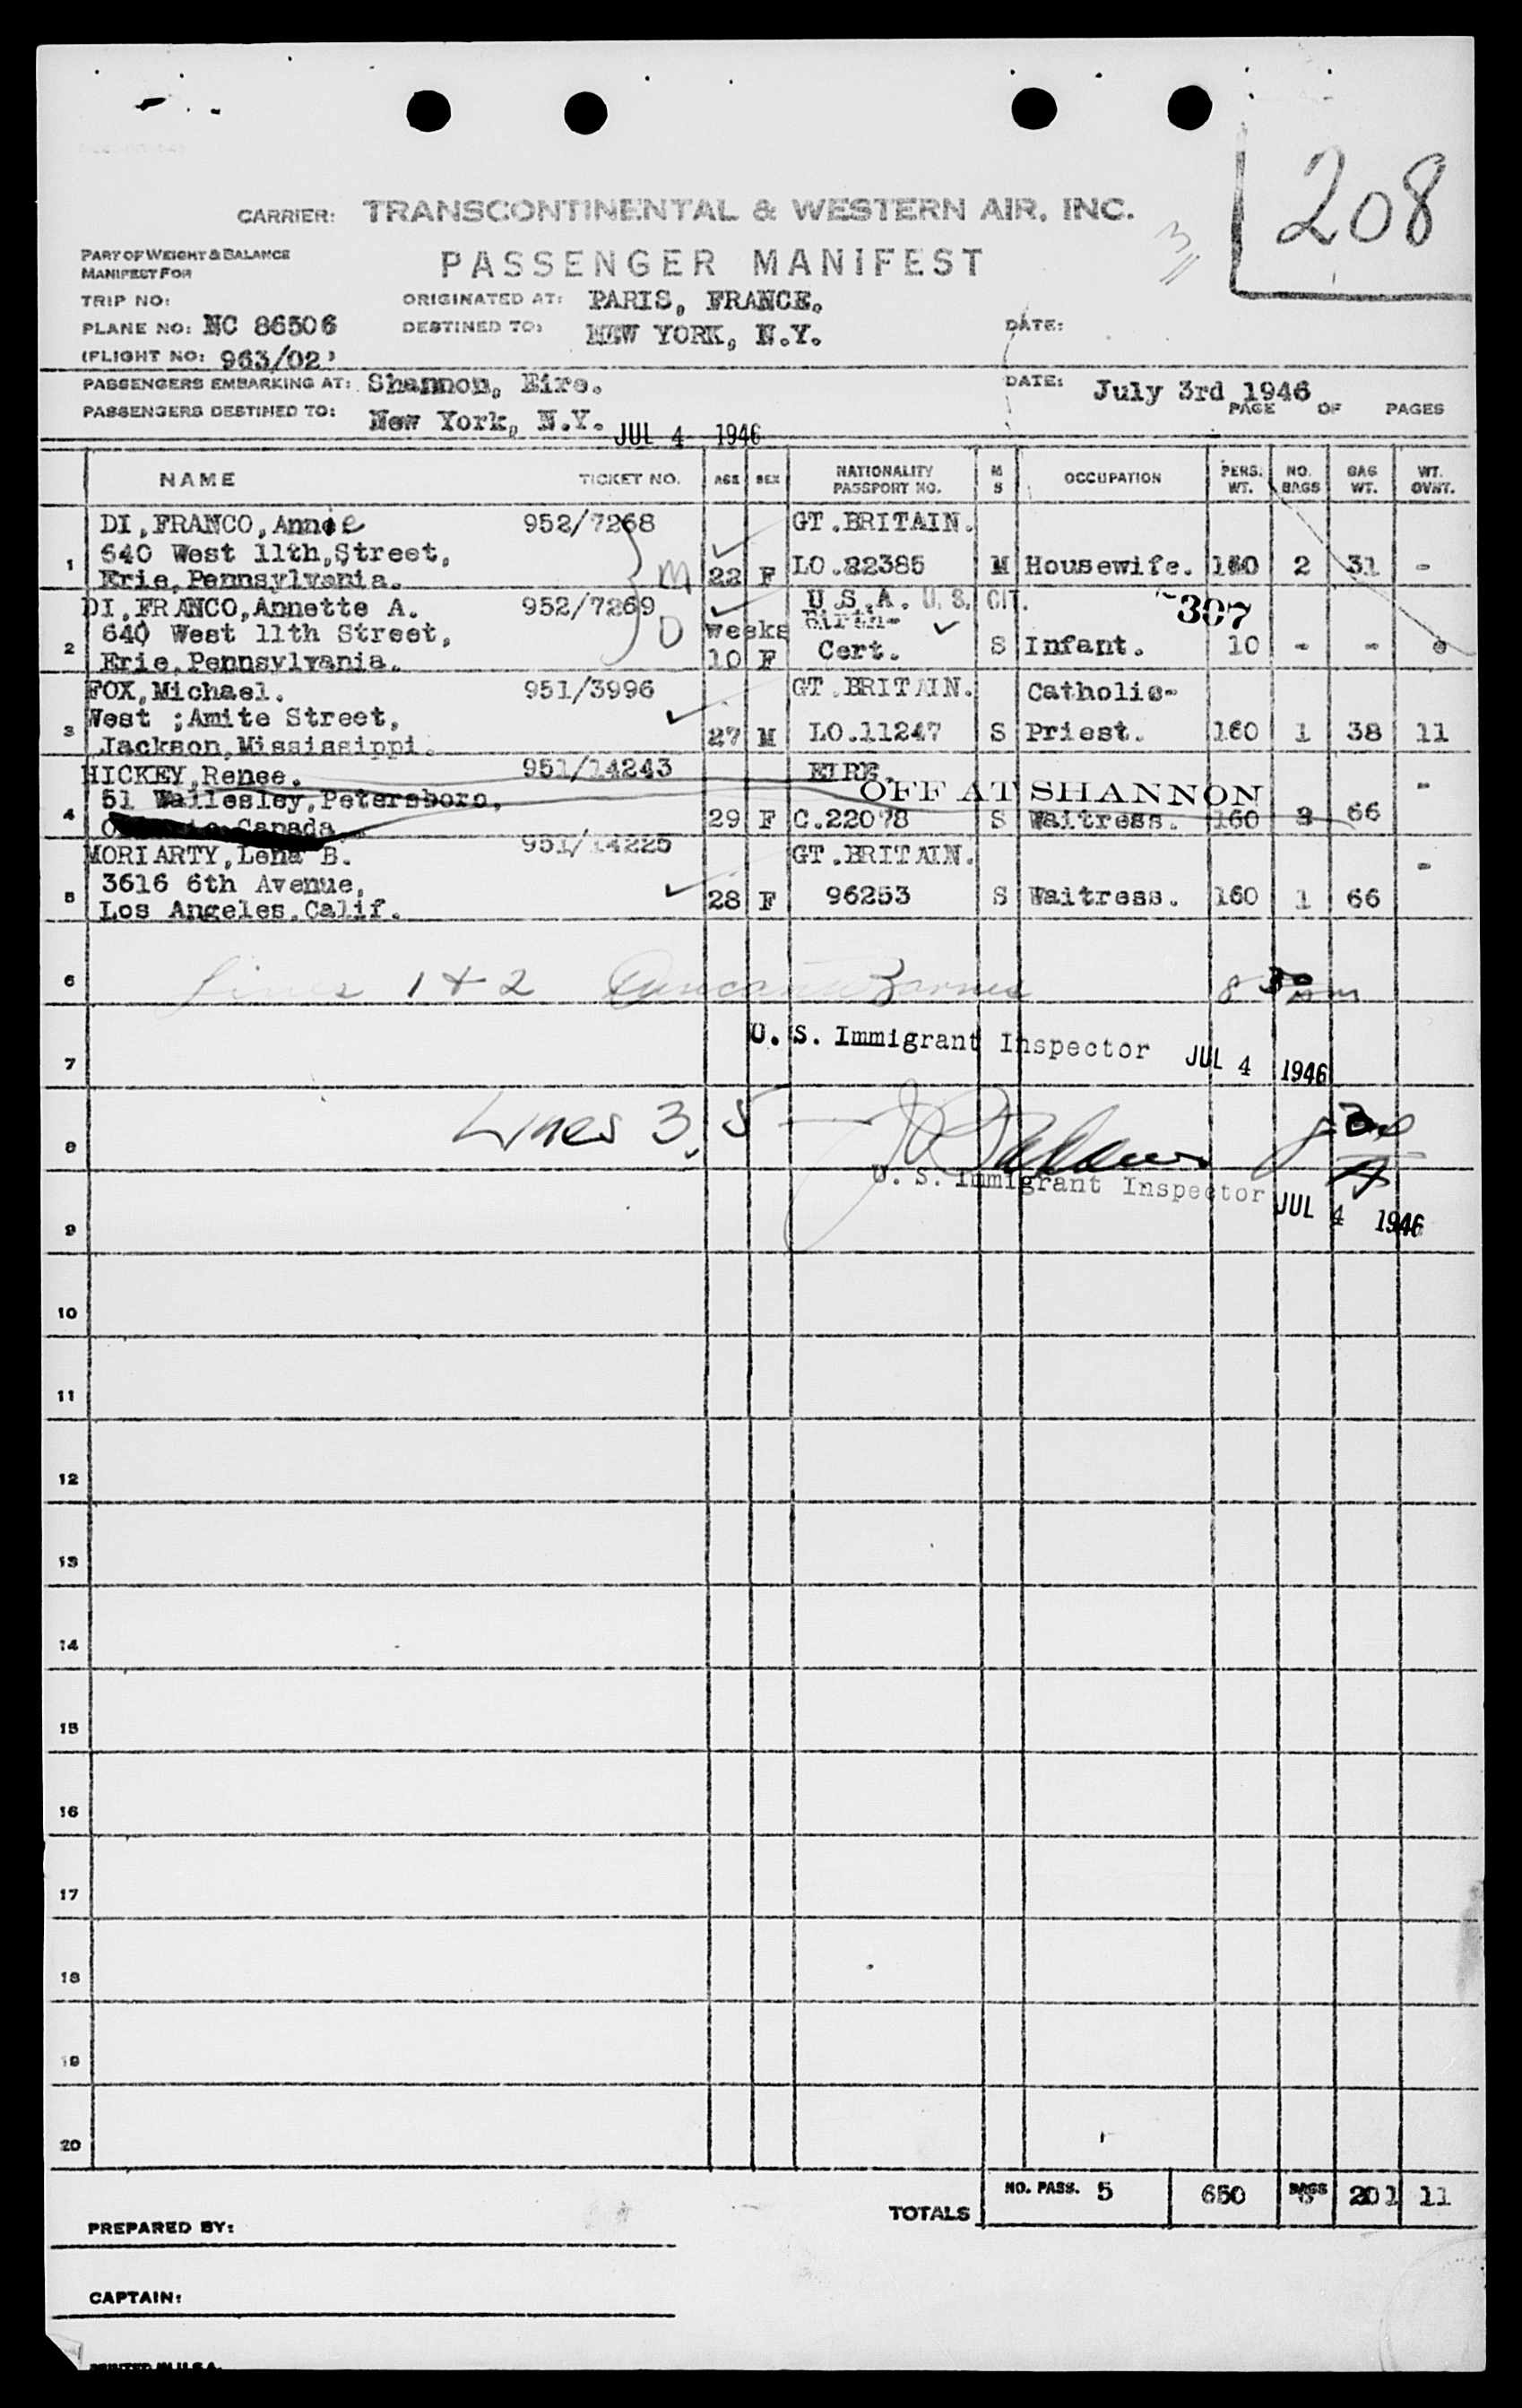 208
CARRIER: TRANSCONTINENTAL & WESTERN AIR, INC.
PART OF WEIGHT & BALANCE
MANIFEST FOR
PASSENGER MANIFEST
TRIP NO:
ORIGINATED AT: PARIS, FRANCE.
PLANE NO: NC 86506
DESTINED TO: NEW YORK, N.Y.
DATE:
(FLIGHT NO: 963/02)
PASSENGERS EMBARKING AT: Shannon, Eire.
DATE: July 3rd 1946
PAGE OF PAGES
PASSENGERS DESTINED TO: New York, N.Y. JUL 4 1946
NAME TICKET NO. AGE SEX NATIONALITY PASSPORT NO. M S OCCUPATION PERS. WT. NO. BAGS BAG WT. WT. OVWT.
DI,FRANCO,Annie 952/7268 GT.BRITAIN.
1 640 West 11th,Street, M 22 F LO.22385 M Housewife. 160 2 31 -
Erie,Pennsylvania.
DI,FRANCO,Annette A. 952/7269 U.S.A. U.S. CIT. 307
2 640 West 11th Street, D weeks Birth-
Erie,Pennsylvania. 10 F Cert. S Infant. 10 - -
FOX,Michael. 951/3996 GT.BRITAIN. Catholic-
3 West ;Amite Street, 27 M LO.11247 S Priest. 160 1 38 11
Jackson,Mississippi.
HICKEY,Renee. 951/14243 EIRE. -
OFF AT SHANNON
4 51 Wailesley,Petersboro, 29 F C.22078 S Waitress. 160 3 66
Canada
MORIARTY,Lena B. 951/14225 GT.BRITAIN. -
5 3616 6th Avenue, 28 F 96253 S Waitress. 160 1 66
Los Angeles.Calif.
6 Lines 1 & 2 8 30 am
U. S. Immigrant Inspector JUL 4 1946
7
8 Lines 3, 5
U. S. Immigrant Inspector JUL 4 1946
9
10
11
12
13
14
15
16
17
18
19
20
TOTALS NO. PASS. 5 650 BAGS 201 11
PREPARED BY:
CAPTAIN:
PRINTED IN U.S.A.